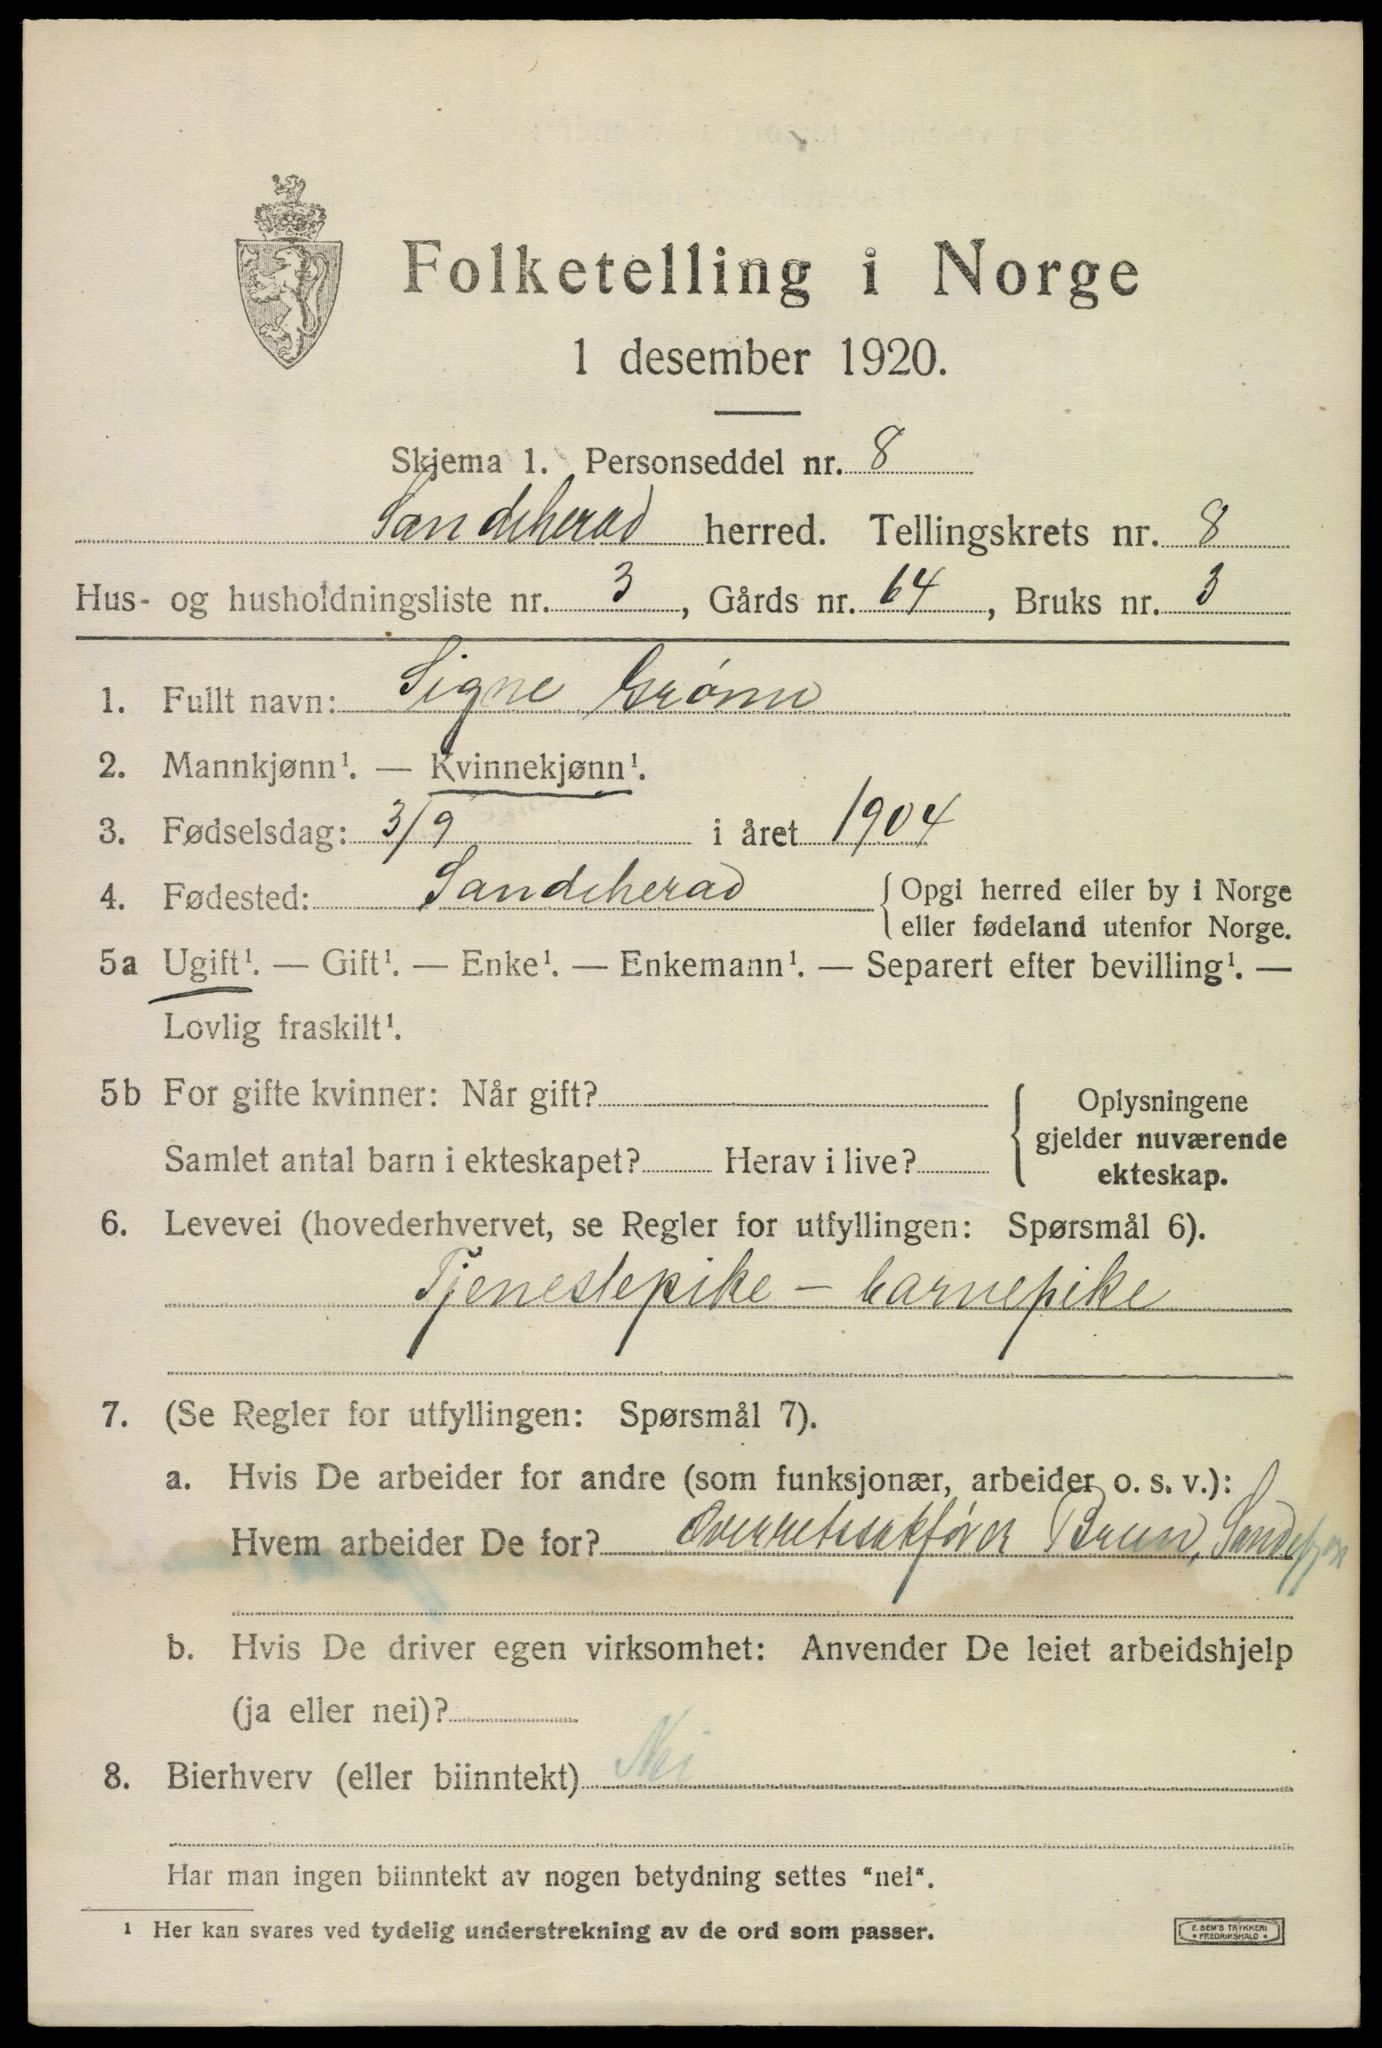 Folketelling i Norge
1 desember 1920.
Skjema 1. Personseddel nr. 8
Sandeherad herred. Tellingskrets nr. 8
Hus- og husholdningsliste nr. 3, Gårds nr. 64, Bruks nr. 3
1. Fullt navn: Signe Grønn
2. Mannkjønn¹. — Kvinnekjønn¹.
3. Fødselsdag: 3/9 i året 1904
4. Fødested: Sandeherad { Opgi herred eller by i Norge
eller fødeland utenfor Norge.
5a Ugift¹. — Gift¹. — Enke¹. — Enkemann¹. — Separert efter bevilling¹. —
Lovlig fraskilt¹.
5b For gifte kvinner: Når gift?
Samlet antal barn i ekteskapet? Herav i live?
{ Oplysningene
gjelder nuværende
ekteskap.
6. Levevei (hovederhvervet, se Regler for utfyllingen: Spørsmål 6).
Tjenestepike – barnepike
7. (Se Regler for utfyllingen: Spørsmål 7).
a. Hvis De arbeider for andre (som funksjonær, arbeider o. s. v.):
Hvem arbeider De for? Overretssakfører Bruun, Sandefjord
b. Hvis De driver egen virksomhet: Anvender De leiet arbeidshjelp
(ja eller nei)?
8. Bierhverv (eller biinntekt) Nei
Har man ingen biinntekt av nogen betydning settes "nei".
¹ Her kan svares ved tydelig understrekning av de ord som passer.
E. SEM'S TRYKKERI
* FREDRIKSHALD *